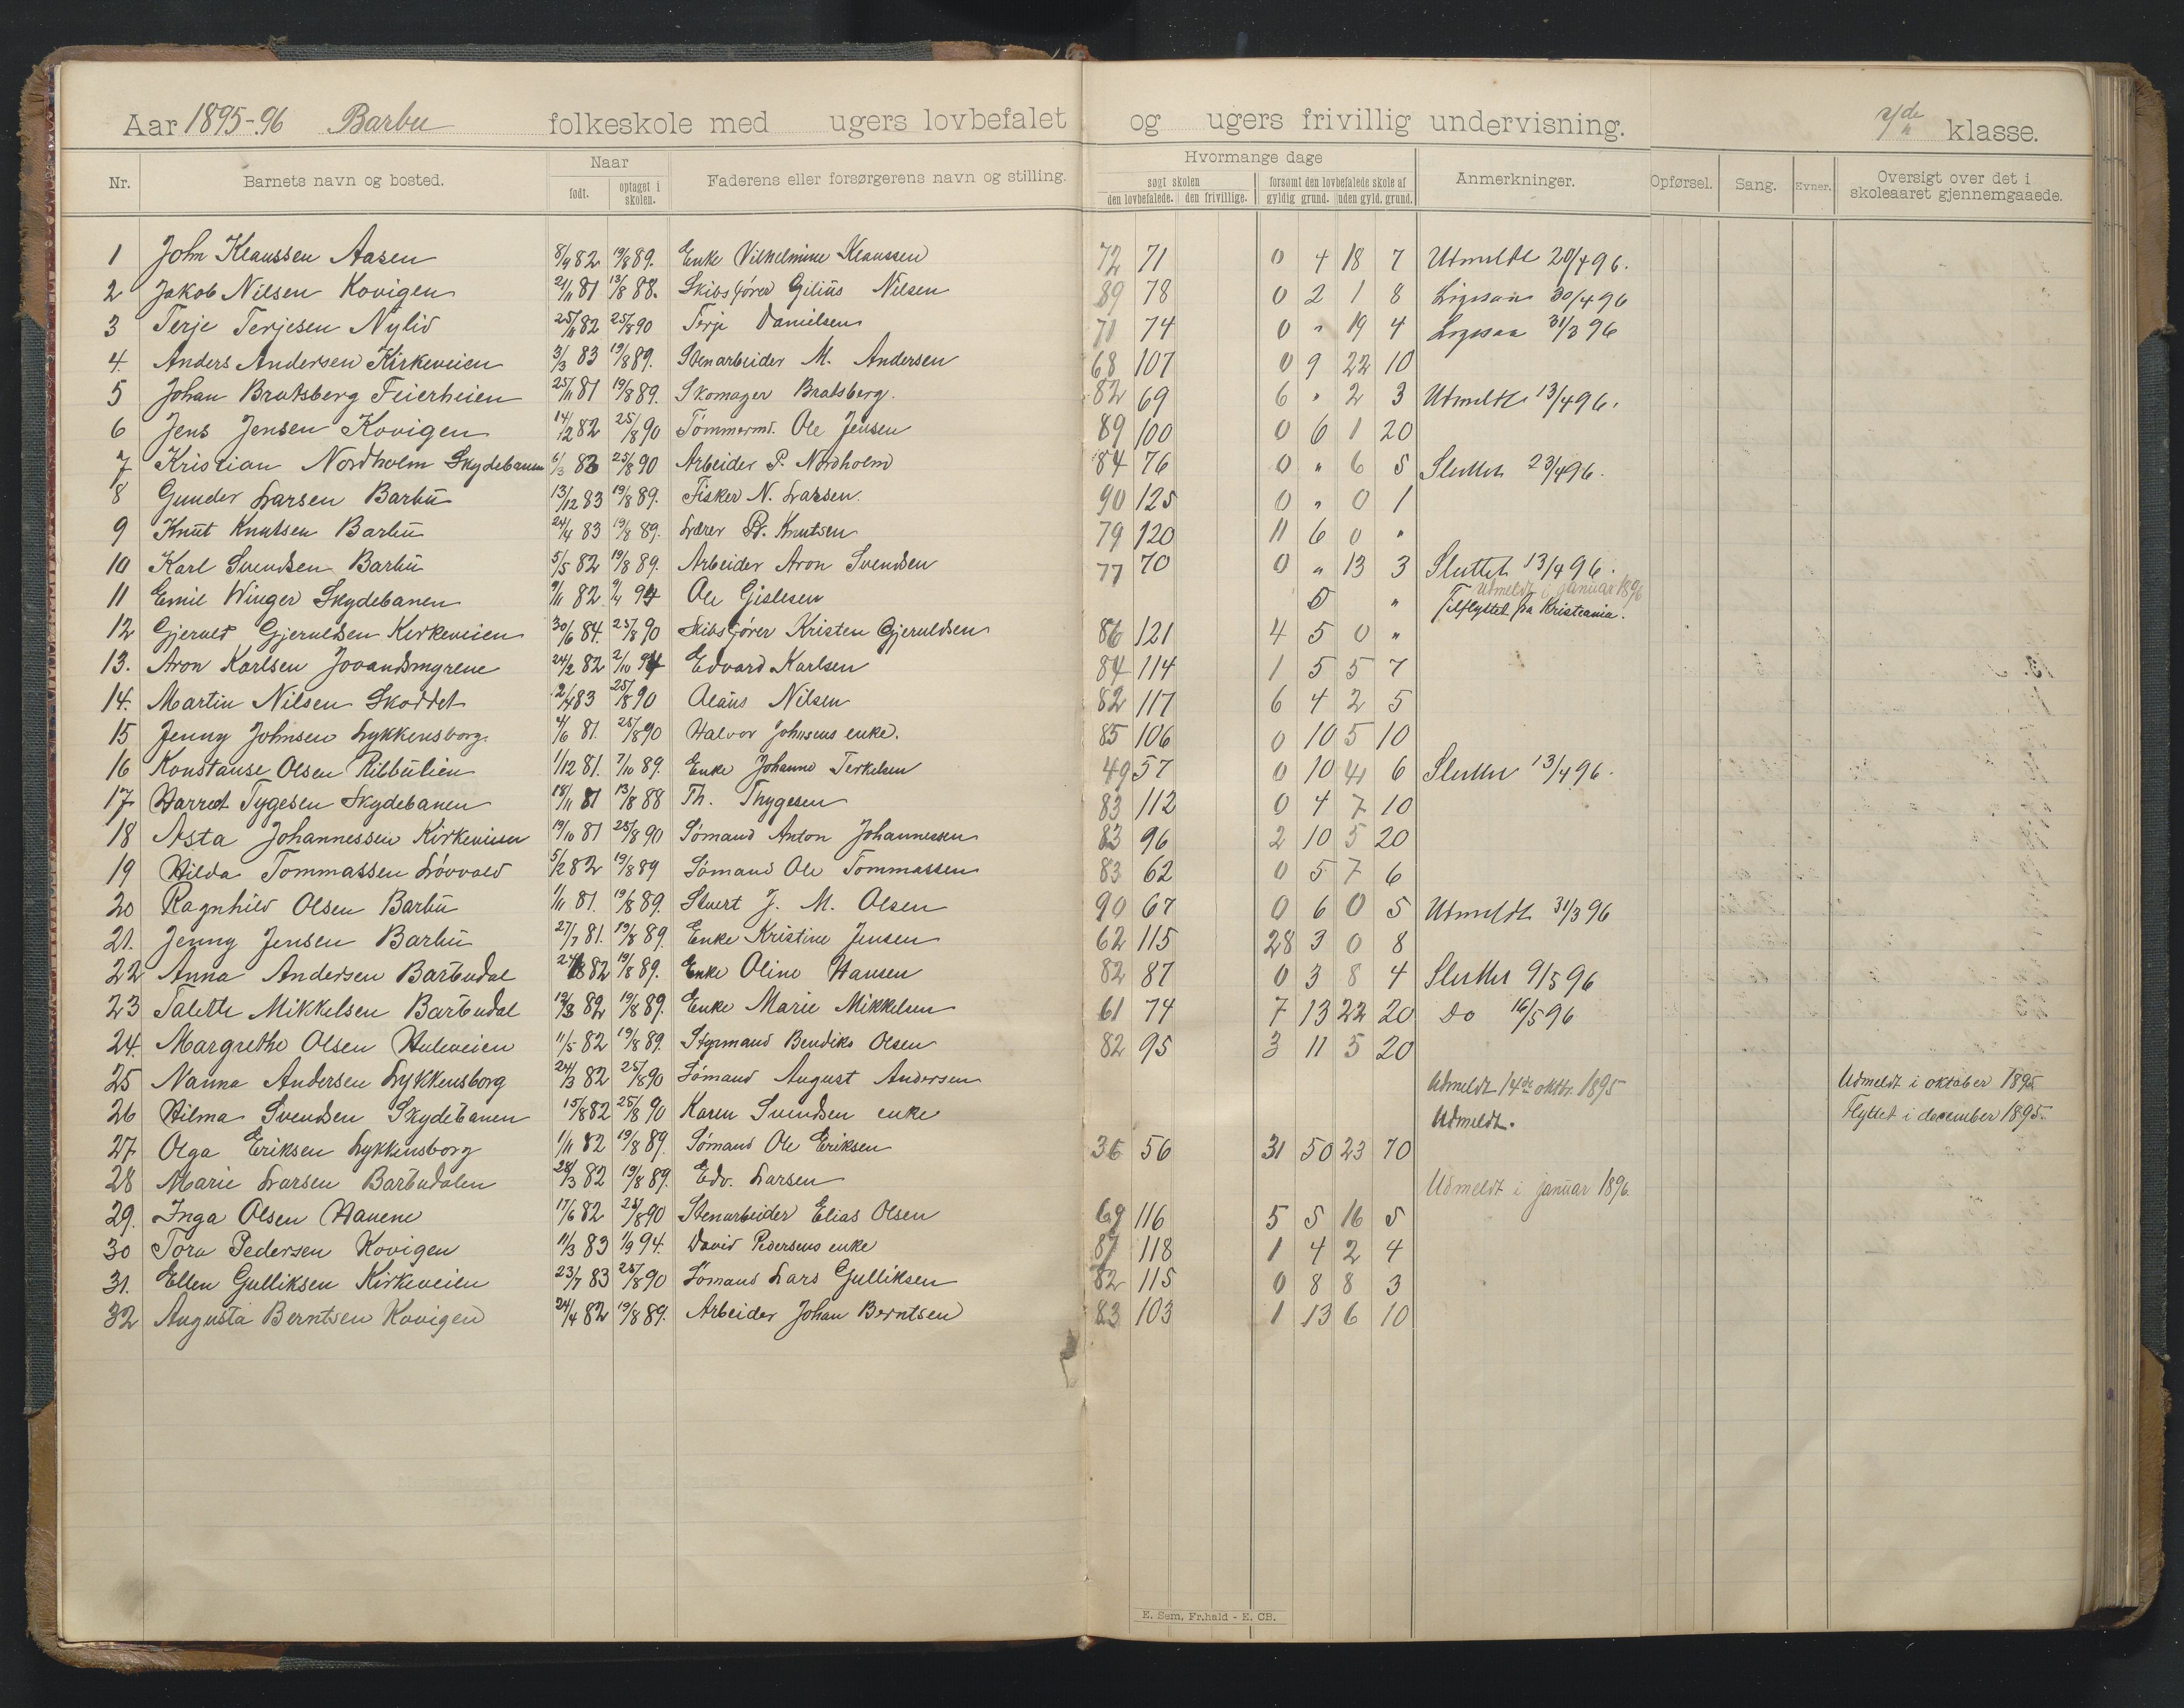 Aar 1895-96 Barbu folkeskole med ugers lovbefalet og ugers frivillig undervisning. klasse.
Nr. Barnets navn og bosted. Naar født. optaget i skolen. Faderens eller forsørgerens navn og stilling. Hvormange dage søgt skolen den lovbefalede. den frivillige. forsømt den lovbefalede skole af gyldig grund. uden gyld. grund. Anmerkninger. Opførsel. Sang. Evner. Oversigt over det i skoleaaret gjennemgaaede.
1 John Klaussen Aasen 8/9 82 19/8 89. Enke Vilhelmine Klaussen 72 71 0 4 18 7 Udmeldt 20/4 96.
2 Jakob Nilsen Kovigen 21/11 81 13/8 88. Skibsfører Gilius Nilsen 89 78 0 2 1 8 Ligesaa 30/4 96
3 Terje Terjesen Nylid 25/11 82 25/8 90 Terje Danielsen 71 74 0 " 19 4 Ligesaa 31/3 96
4. Anders Andersen Kirkeveien 3/3 83 19/8 89. Stenarbeider M. Andersen 68 107 0 9 22 10
5 Johan Bratsberg Feierheien 25/11 81 19/8 89. Skomager Bratsberg. 82 69 6 " 2 3 Udmeldt 13/4 96.
6 Jens Jensen Kovigen 14/12 82 25/8 90 Tømmermd. Ole Jensen 89 100 0 6 1 20
7 Kristian Nordholm Skydebanen 6/3 83 25/8 90 Arbeider P. Nordholm 84 76 0 " 6 5 Sluttet 23/4 96.
8 Gunder Larsen Barbu 13/12 83 19/8 89. Fisker N. Larsen. 90 125 0 " 0 1
9 Knut Knutsen Barbu 24/4 83 19/8 89. Lærer Knutsen 79 120 11 6 0 "
10 Karl Svendsen Barbu 5/5 82 19/8 89. Arbeider Aron Svendsen 77 70 0 " 13 3 Sluttet 13/4 96.
11 Emil Winger Skydebanen 9/11 82 94 Ole Gislesen 5 " Udmeldt i januar 1896 Tilflyttet fra Kristiania.
12 Gjeruld Gjeruldsen Kirkeveien 30/6 84. 25/8 90 Skibsfører Kristen Gjeruldsen 86 121 4 5 0 "
13. Aron Karlsen Jovandsmyrene 24/2 82 2/10 94 Edvard Karlsen 84 114 1 5 5 7
14. Martin Nilsen Skoddet 2/4 83 25/8 90 Olaus Nilsen 82 117 6 4 2 5
15 Jenny Johnsen Lykkensborg. 4/6 81. 25/8 90 Halvor Johnsens enke. 85 106 0 10 5 10
16 Konstanse Olsen Ribbulien 1/12 81. 7/10 89. Enke Johanne Terkelsen 49 57 0 10 4 6 Sluttet 13/4 96.
17 Harriet Tygesen Skydebanen 18/11 81 13/8 88 Th. Thygesen 83 112 0 4 7 10
18 Asta Johannessen Kirkeveien 19/10 81 25/8 90 Sømand Anton Johannessen 83 96 2 10 5 20
19 Hilda Tommassen Løvvold 5/2 82 19/8 89 Sømand Ole Tommassen 83 62 0 5 7 6
20 Ragnhild Olsen Barbu 1/11 81. 19/8 89. Stuert J. M. Olsen 90 67 0 6 0 5 Udmeldt 31/3 96
21. Jenny Jensen Barbu 27/7 81. 19/8 89. Enke Kristine Jensen 62 115 28 3 0 8
22 Anna Andersen Barbudal 82 19/8 89. Enke Oline Hansen 82 87 0 3 8 4 Sluttet 9/5 96
23 Talette Mikkelsen Barbudal 19/8 82 19/8 89. Enke Marie Mikkelsen 61 74 7 13 22 20 Do 16/5 96
24. Margrethe Olsen Huleveien 11/5 82 19/8 89. Styrmand Bendiks Olsen 82 95 3 11 5 20
25 Nanna Andersen Lykkensborg 24/3 82 25/8 90 Sømand August Andersen Udmeldt 14de oktbr. 1895 Udmeldt i oktober 1895
26 Hilma Svendsen Skydebanen 15/8 82 25/8 90 Karen Svendsen enke Udmeldt. Flyttet i december 1895.
27 Olga Eriksen Lykkensborg 1/11 82 19/8 89. Sømand Ole Eriksen 36 56 31 50 23 70
28 Marie Larsen Barbudalen 28/3 82 19/8 89. Edv. Larsen Udmeldt i januar 1896.
29. Inga Olsen Hauene 17/6 82 25/8 90 Stenarbeider Elias Olsen 69 116 5 5 16 5
30 Tora Pedersen Kovigen 11/3 83 1/9 94. David Pedersens enke 87 118 1 4 2 4
31. Ellen Gulliksen Kirkeveien 23/7 83 25/8 90 Sømand Lars Gulliksen 82 115 0 8 8 3
32 Augusta Berntsen Kovigen 24/4 82 19/8 89. Arbeider Johan Berntsen 83 103 1 13 6 10
E. Sem, Fr.hald - E. CB.